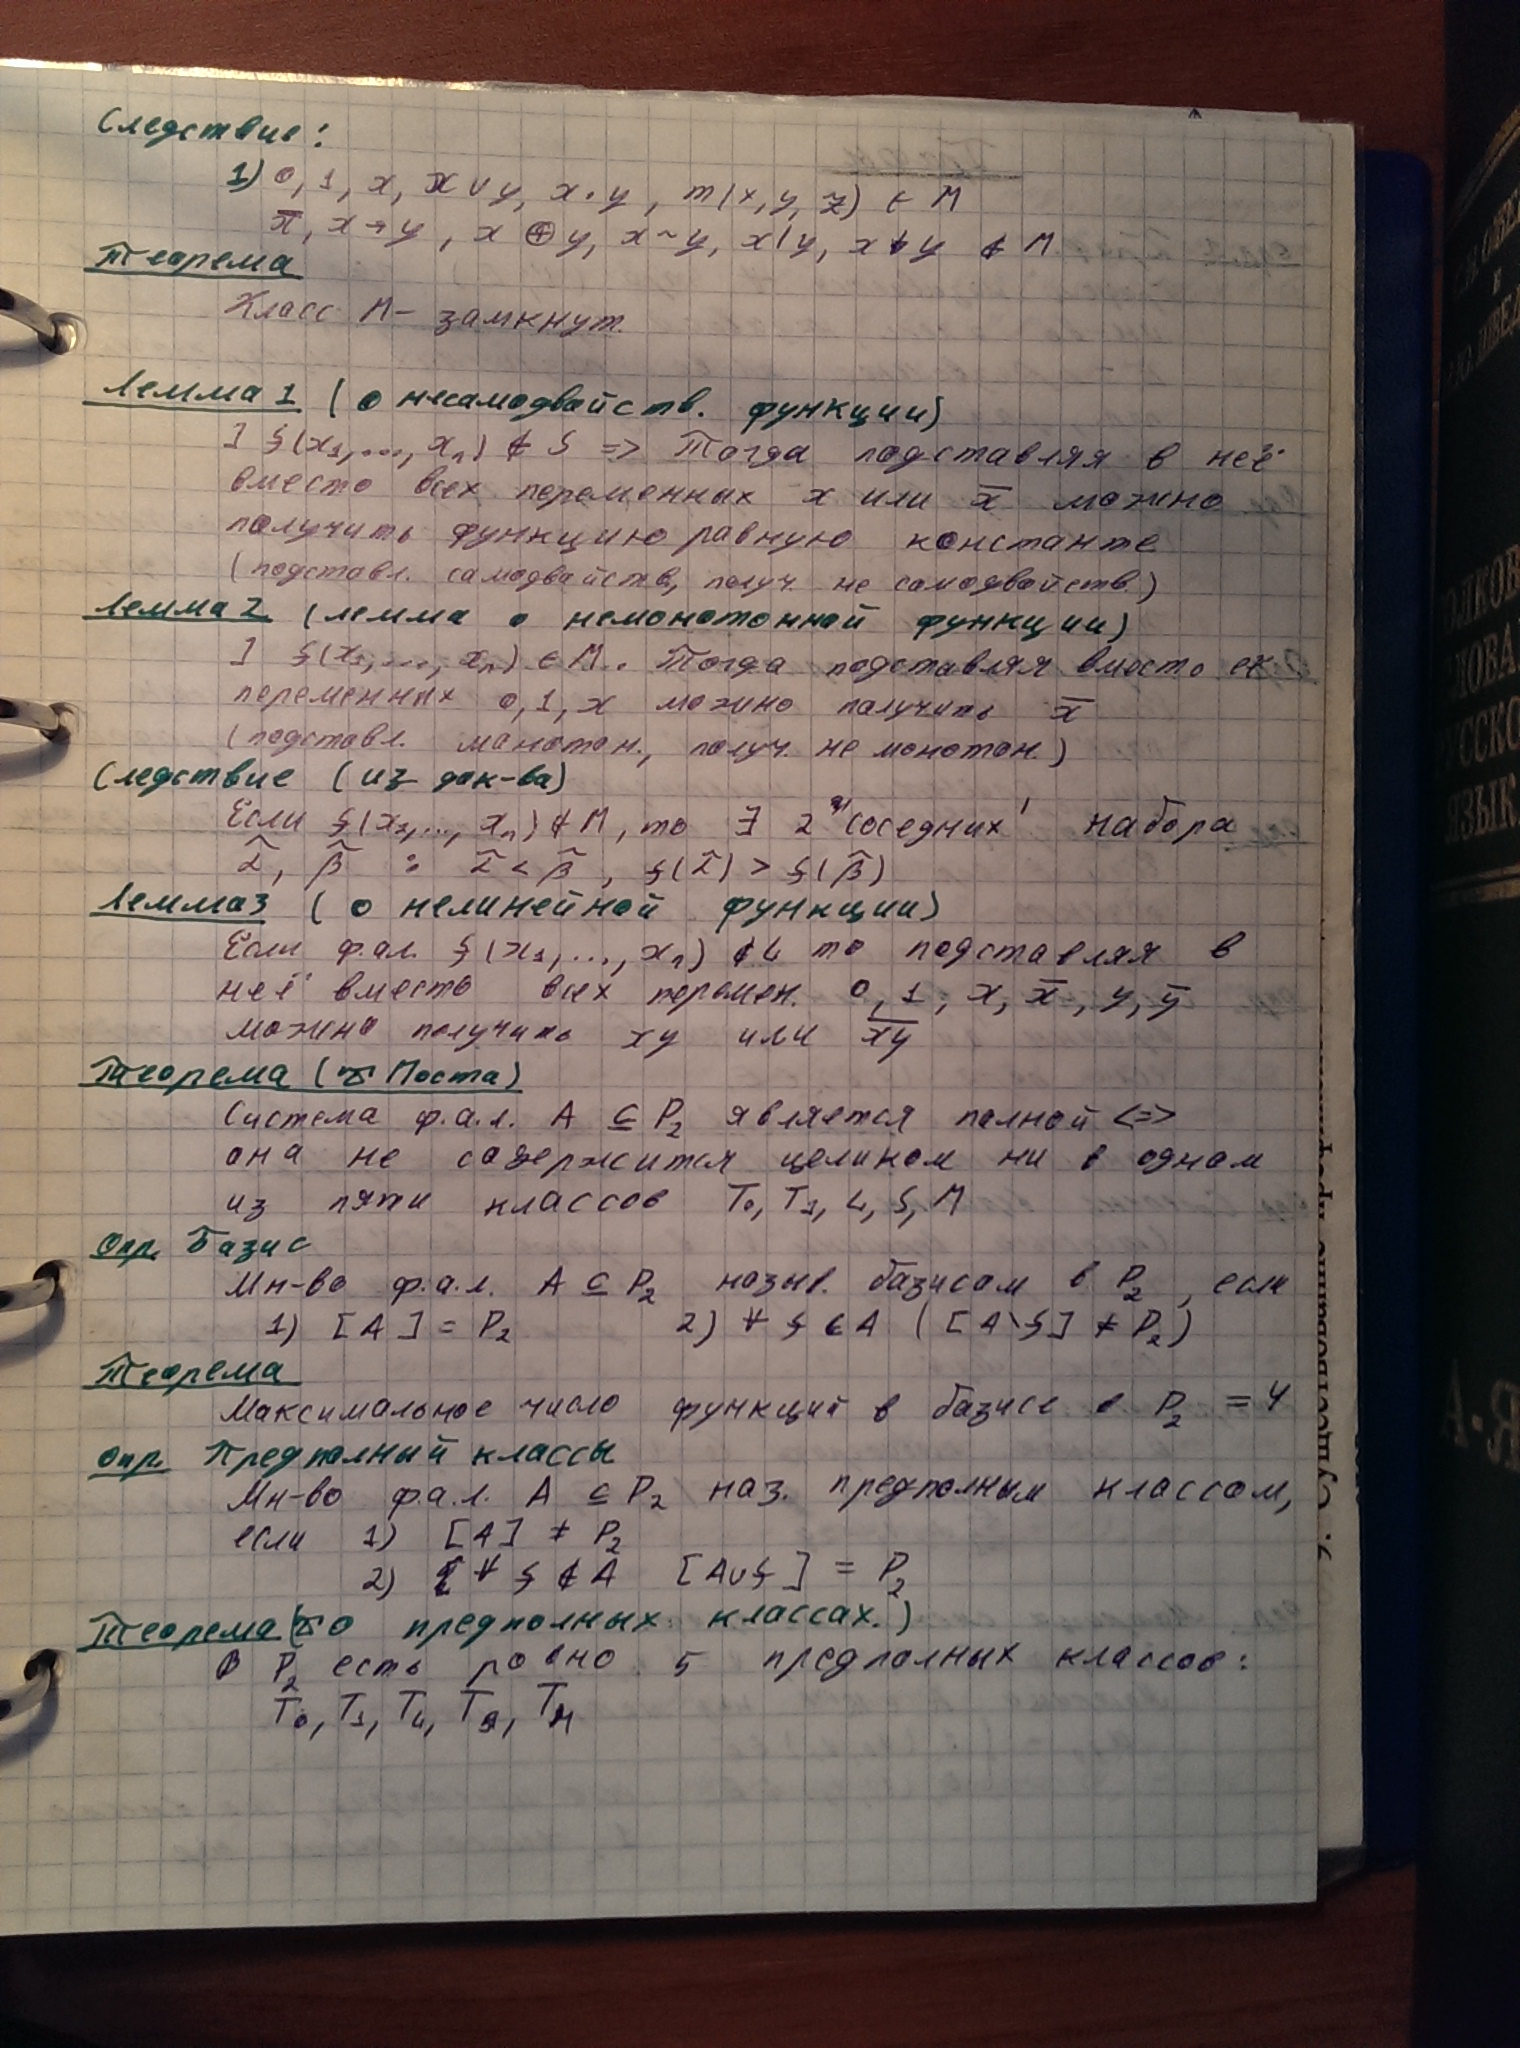 Следствие:
1) 0, 1, x, x∨y, x·y, m(x,y,z) ∈ M
x̅, x→y, x⊕y, x~y, x|y, x↓y ∉ M
Теорема
Класс M – замкнут.
Лемма 1 (о несамодвойств. функции)
] f(x₁,...,xₙ) ∉ S => Тогда подставляя в неё
вместо всех переменных x или x̅ можно
получить функцию равную константе
(подставл. самодвойств, получ. не самодвойств.)
Лемма 2 (лемма о немонотонной функции)
] f(x₁,...,xₙ) ∈ M. Тогда подставляя вместо ех
переменных 0, 1, x можно получить x̅
(подставл. монотон., получ. не монотон.)
Следствие (из док-ва)
Если f(x₁,...,xₙ) ∉ M, то ∃ 2 "соседних" набора
α̃, β̃ : α̃ < β̃, f(α̃) > f(β̃)
Лемма 3 (о нелинейной функции)
Если ф.ал. f(x₁,...,xₙ) ∉ L то подставляя в
неё вместо всех перемен. 0, 1, x, x̅, y, y̅
можно получить xy или x̅y̅
Теорема (т Поста)
Система ф.а.л. A ⊆ P₂ является полной <=>
она не содержится целиком ни в одном
из пяти классов T₀, T₁, L, S, M
Опр. Базис
Мн-во ф.а.л. A ⊆ P₂ назыв. базисом в P₂, если
1) [A] = P₂ 2) ∀ f ∈ A ([A\f] ≠ P₂)
Теорема
Максимальное число функций в базисе в P₂ = 4
Опр. Предполный классы
Мн-во ф.а.л. A ⊆ P₂ наз. предполным классом,
если 1) [A] ≠ P₂
2) ∀ f ∉ A [A∪f] = P₂
Теорема (т о предполных классах.)
В P₂ есть ровно 5 предполных классов:
T₀, T₁, T_L, T_S, T_M
ЯЗЫК
А-Я